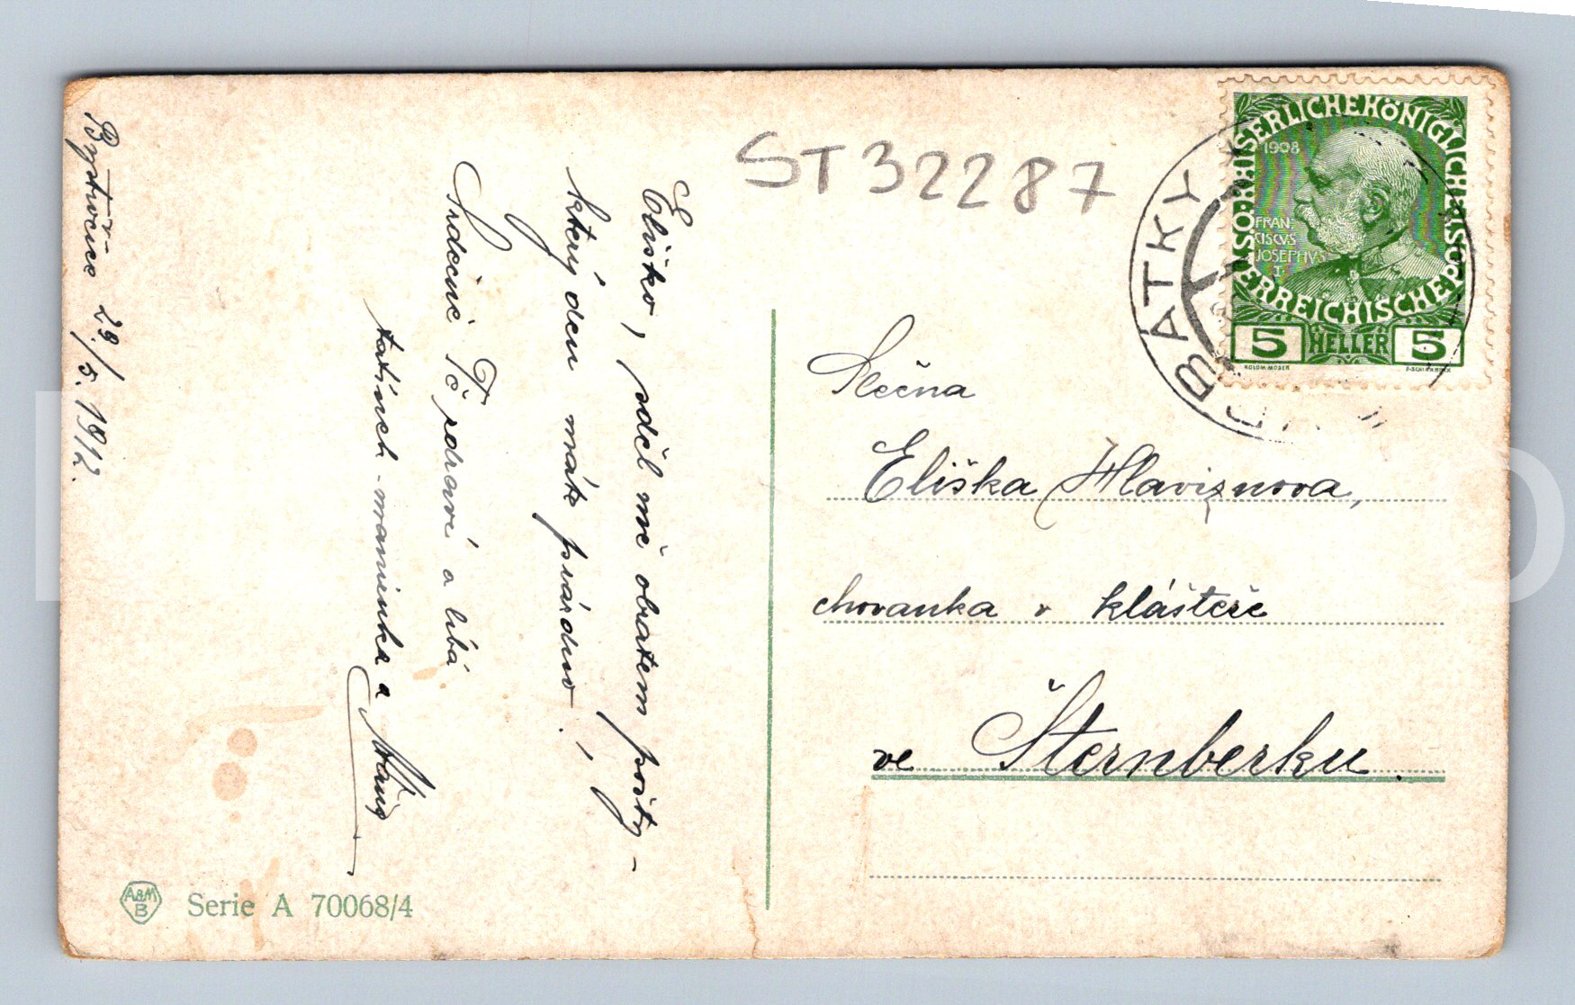 Bystročice 29./5. 1912.
Eliško, sděl mě obratem pošty-
který den máte prázdno!,
Srdečně Tě zdraví a líbá
tatínek - maminka a
ST32287
Slečna
Eliška Hlaviznova,
chovanka v klášteře
ve Šternberku.
KAISERLICHE KÖNIGLICHE
ÖSTERREICHISCHE POST
1908
FRAN
CISCVS
JOSEPHVS
I
5 HELLER 5
KOLOM. MOSER
F. SCHIRNBÖCK
BÁTKY
A&M
B
Serie A 70068/4